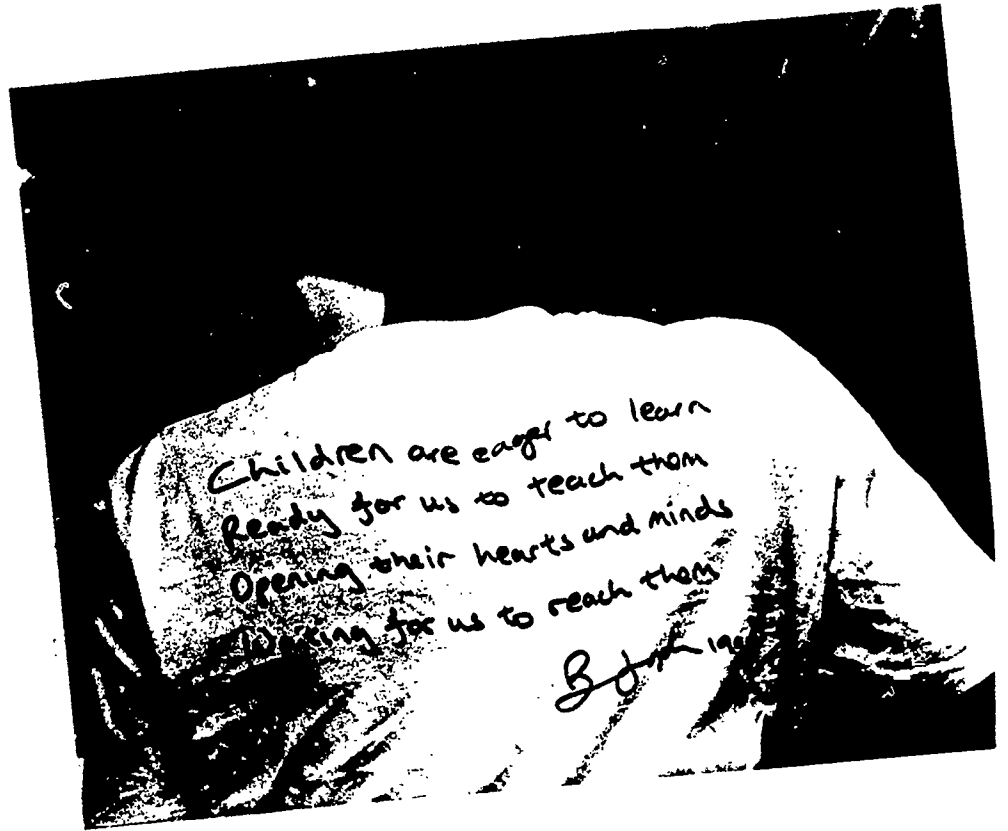 Children are eager to learn
Ready for us to teach them
Opening their hearts and minds
Waiting for us to reach them
B